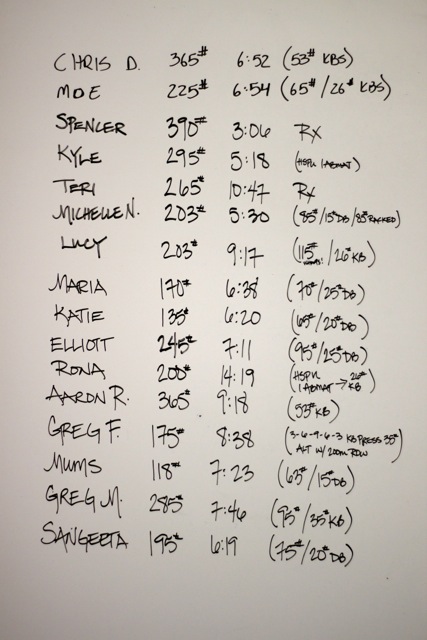 CHRIS D. 365# 6:52 (53# KBS)
MOE 225# 6:54 (65#/26# KBS)
SPENCER 390# 3:06 RX
KYLE 295# 5:18 (HSPU 1 ABMAT)
TERI 265# 10:47 RX
MICHELLE N. 203# 5:30 (85#/15#DB/85# RACKED)
LUCY 203# 9:17 (115#/26# KB)
MARIA 170# 6:38 (70#/25#DB)
KATIE 135# 6:20 (65#/20#DB)
ELLIOTT 245# 7:11 (95#/25#DB)
RONA 200# 14:19 (HSPU 1 ABMAT → 26# KB)
AARON R. 365# 9:18 (53# KB)
GREG F. 175# 8:38 (3-6-9-6-3 KB PRESS 35#
ALT W/ 200M ROW)
MUMS 118# 7:23 (63#/15#DB)
GREG M. 285# 7:46 (95#/35# KB)
SANGEETA 195# 6:19 (75#/20# DB)